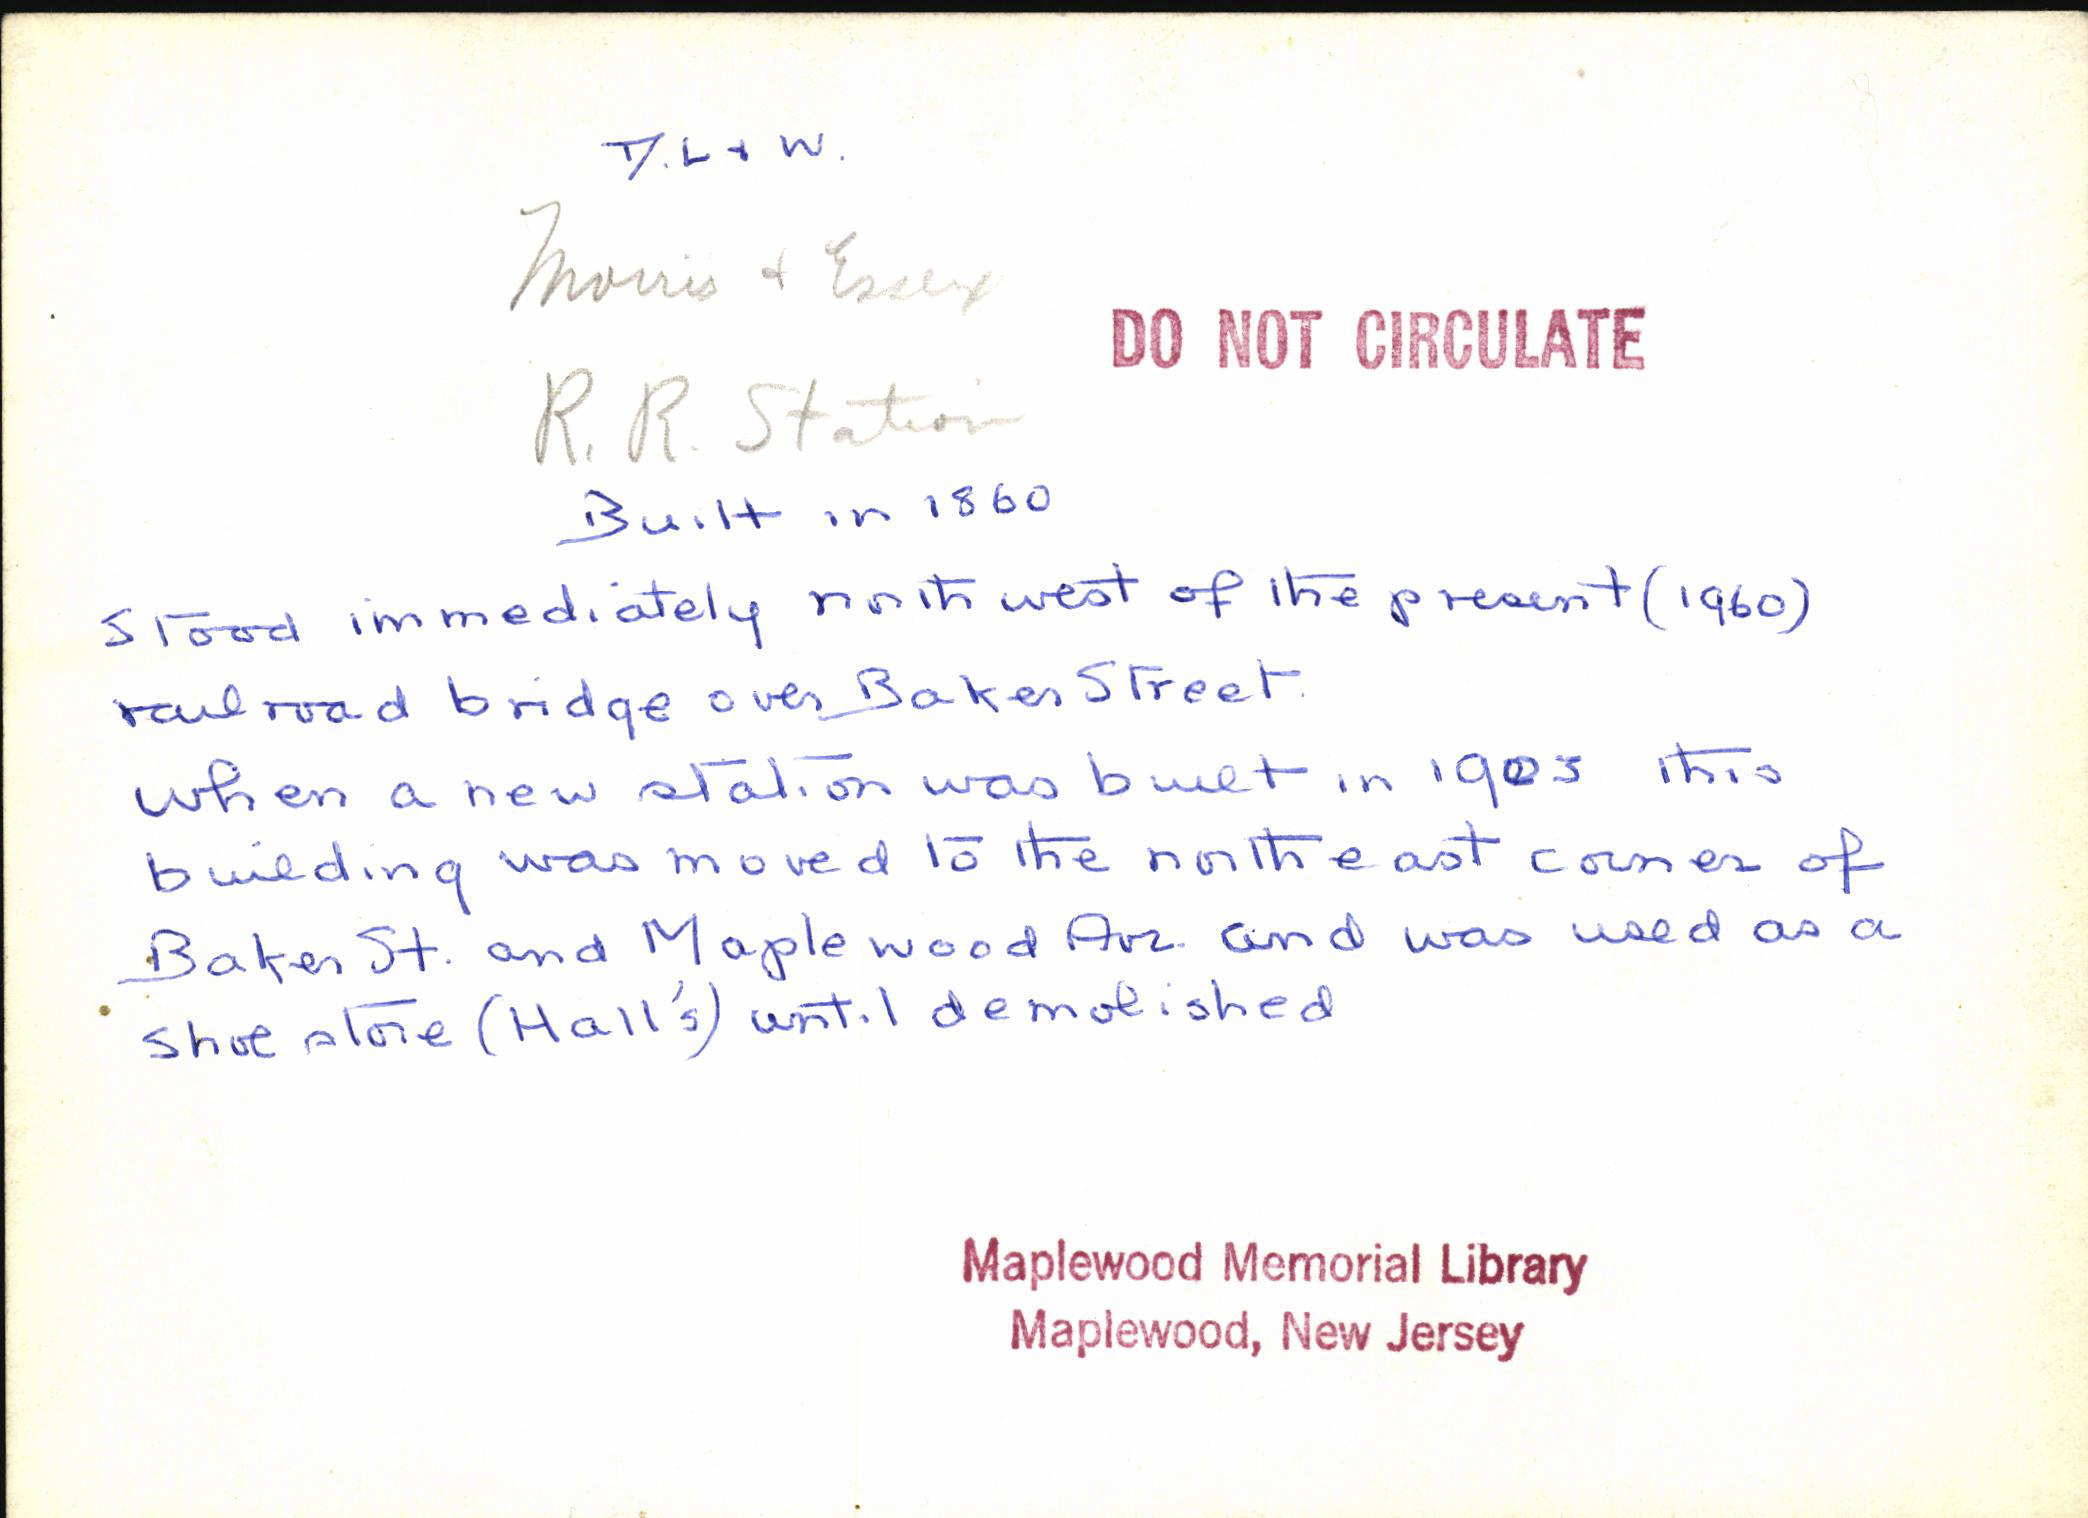 D. L & W.
Morris & Essex
DO NOT CIRCULATE
R. R. Station
Built in 1860
Stood immediately northwest of the present (1960)
railroad bridge over Baker Street.
When a new station was built in 1903 this
building was moved to the northeast corner of
Baker St. and Maplewood Ave. and was used as a
shoe store (Hall's) until demolished
Maplewood Memorial Library
Maplewood, New Jersey